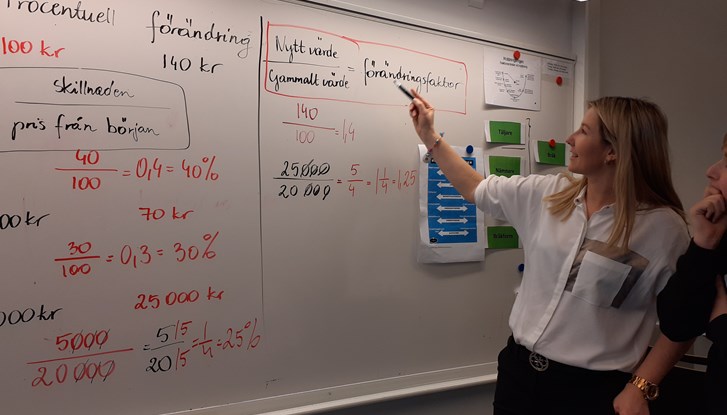 rocentuell förändring
100 kr 140 kr
skillnaden
pris från början
40
100
= 0,4 = 40%
00 kr 70 kr
30
100
= 0,3 = 30%
000 kr 25 000 kr
5000
20 000
= 5/5
20/5
= 1
4
= 25%
Nytt värde
Gammalt värde
= förändringsfaktor
140
100
= 1,4
25000
20 000
= 5
4
= 1 1
4
= 1,25
Täljare